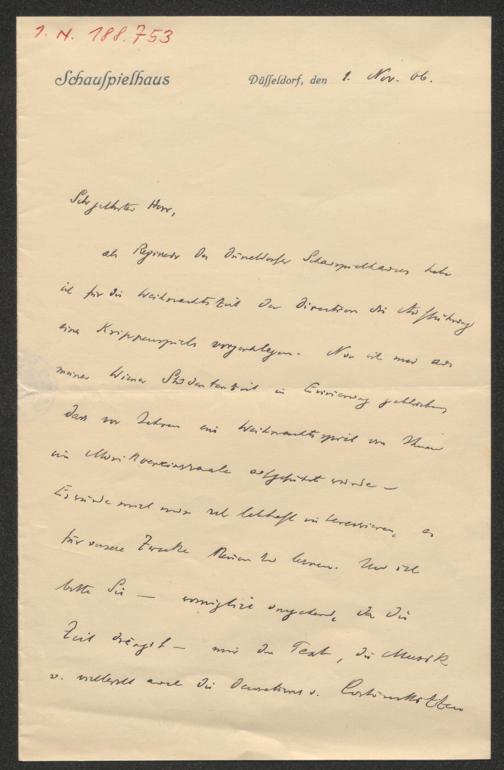 I. N. 188.753
Schauspielhaus
Düsseldorf, den 1. Nov. 06.
Sehr geehrter Herr,
als Regisseur des Düsseldorfer Schauspielhauses habe
ich für die Weihnachtszeit der Direktion die Aufführung
eines Krippenspiels vorgeschlagen. Nun ist mir aus
meiner Wiener Studentenzeit in Erinnerung geblieben,
dass vor Jahren ein Weihnachtsspiel von Ihnen
im Musikvereinssaale aufgeführt wurde –
Es würde mich nun sehr lebhaft interessieren, es
für unsere Zwecke kennen zu lernen. Und ich
bitte Sie – womöglich umgehend, da die
Zeit drängt – mir den Text, die Musik
u. vielleicht auch die Decorations u. Costümskizzen